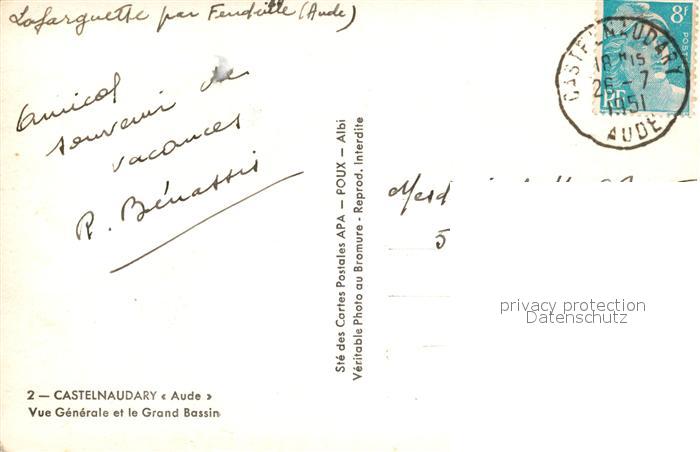 Lafarguette par Fendeille (Aude)
Amical
souvenir de
vacances
R. Bénassis
2 — CASTELNAUDARY « Aude »
Vue Générale et le Grand Bassin
Sté des Cartes Postales APA — POUX — Albi
Véritable Photo au Bromure - Reprod. Interdite
8F
POSTES
RF
CASTELNAUDARY
18 H 15
26 - 7
1951
AUDE
Mesd
5
privacy protection
Datenschutz